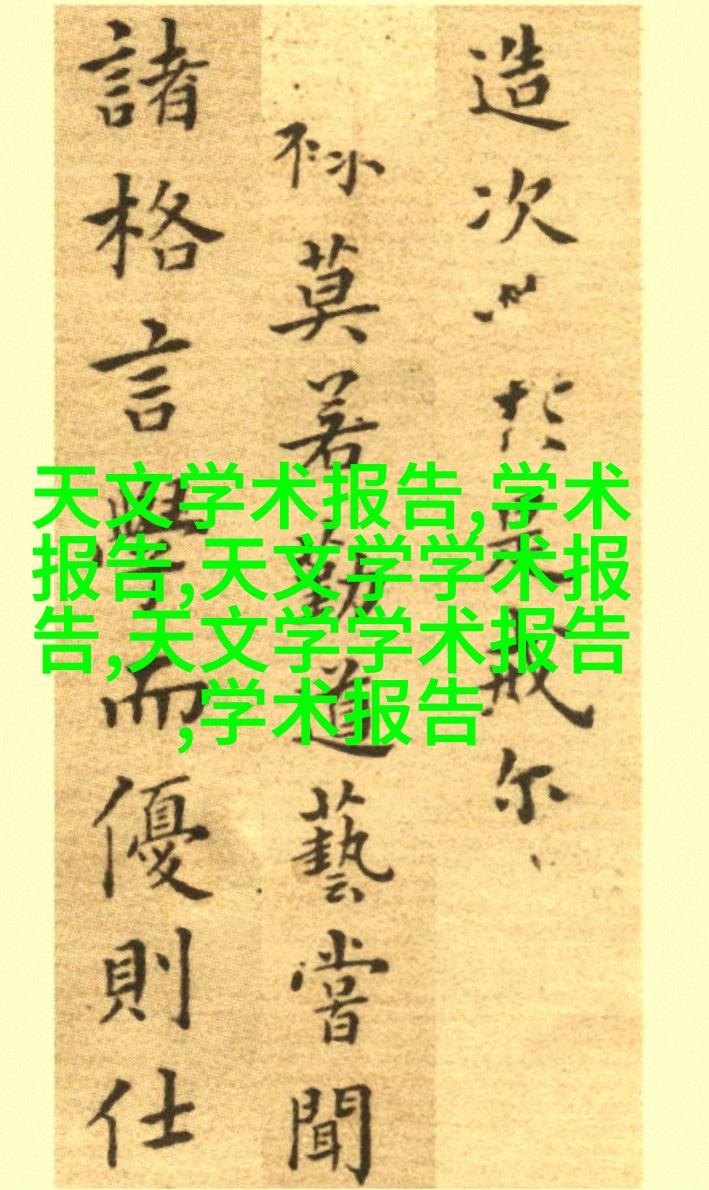 造次必於是戒尔
不小莫若勤道藝嘗聞
諸格言學而優則仕
天文学术报告,学术
报告,天文学学术报
告,天文学学术报告
,学术报告